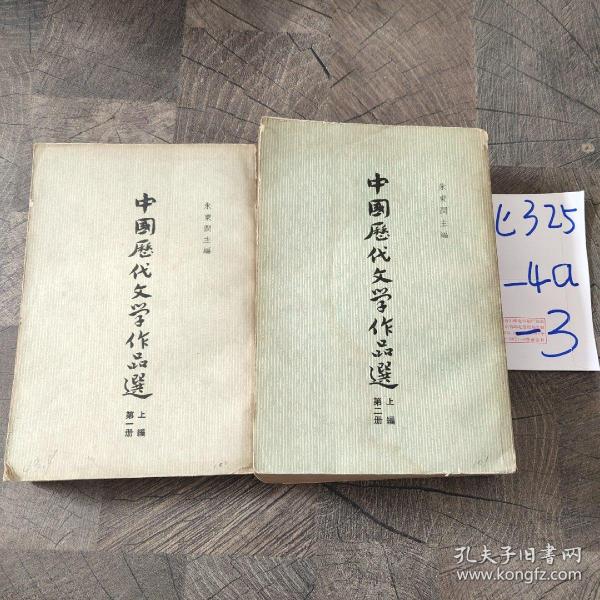 朱東潤主編
中國歷代文学作品選
上編
第一册
朱東潤主編
中國歷代文学作品選
上編
第二册
325
-4a
-3
孔夫子旧書网
www.kongfz.com